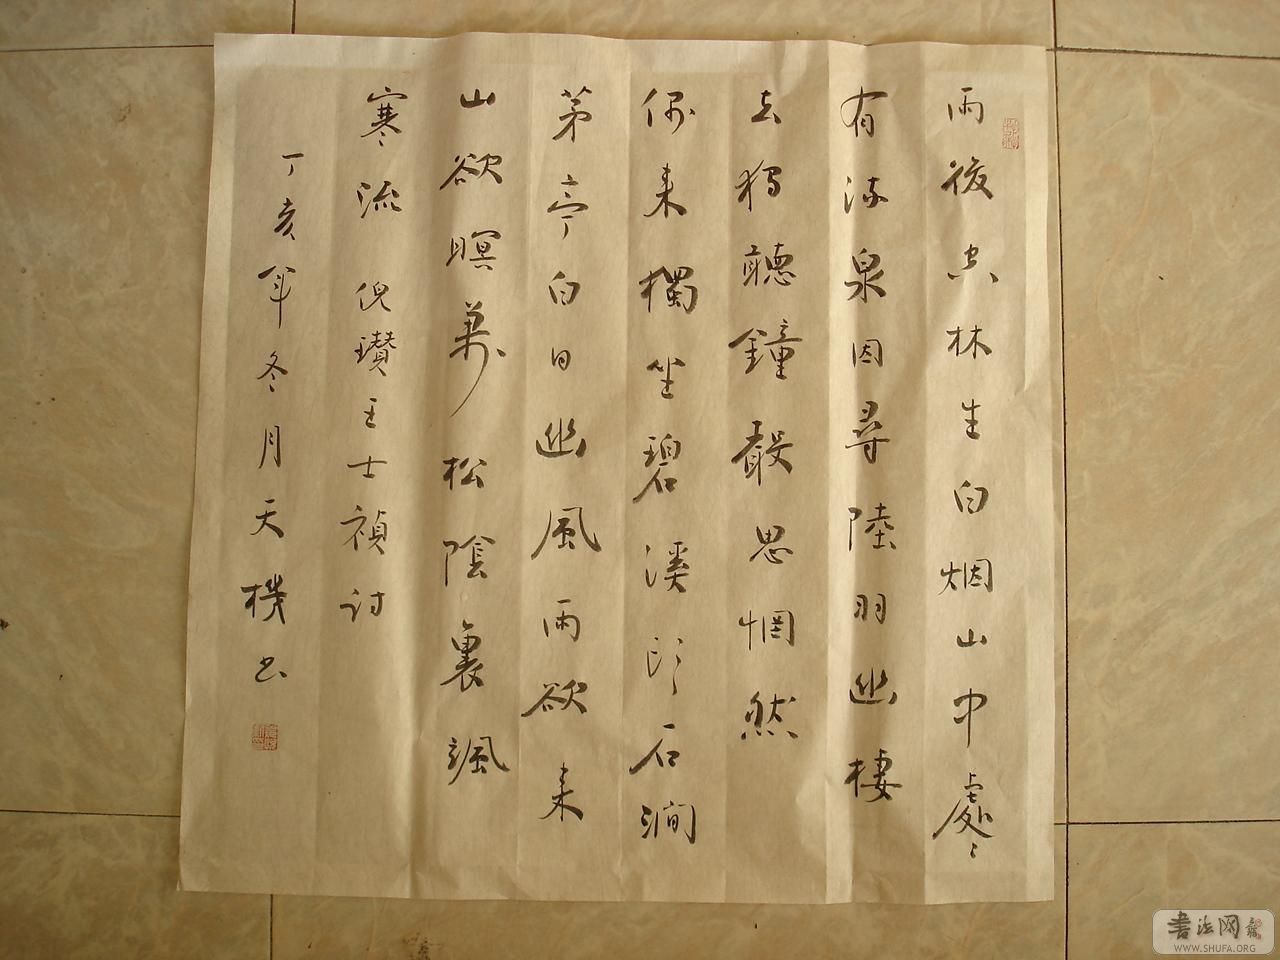 雨後空林生白烟山中處〻
有流泉因尋陸羽幽棲
去獨聽鐘聲思惘然
偶来獨坐碧溪頭石澗
茅亭白日幽風雨欲来
山欲暝萬松陰裏颯
寒流 倪瓚王士禎詩
丁亥年冬月天機书
書法网
WWW.SHUFA.ORG